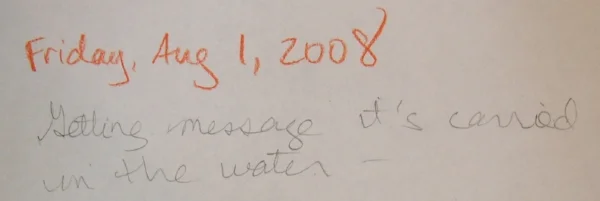 Friday, Aug 1, 2008
Getting message it's carried
in the water –